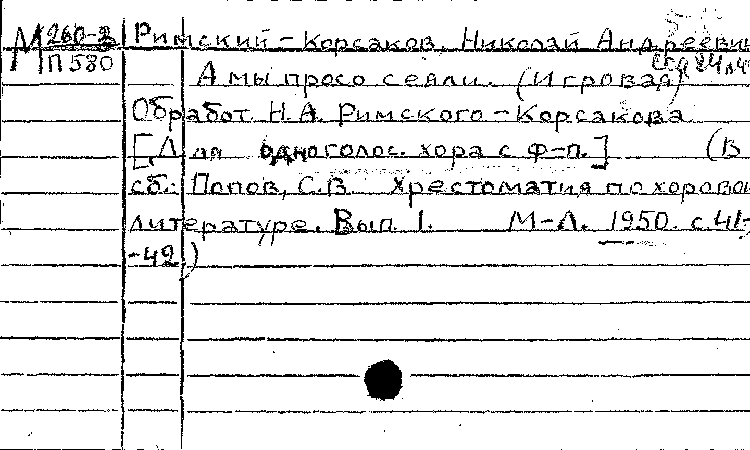 М 260-2 Римский-Корсаков, Николай Андреевич
П 580
А мы просо сеяли. (Игровая)
Обработ. Н.А. Римского-Корсакова
[Для одноголос. хора с ф-п.] (В
сб.: Попов, С.В. Хрестоматия по хоровой
литературе. Вып. 1. М-Л. 1950. с.41-
-42)